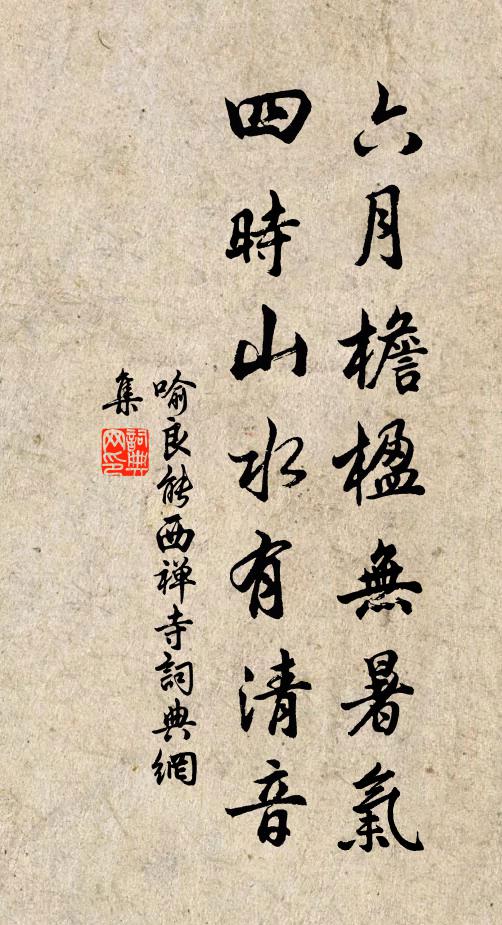 六月檐楹無暑氣
四時山水有清音
喻良能西禅寺詞典網
集
詞典
网印